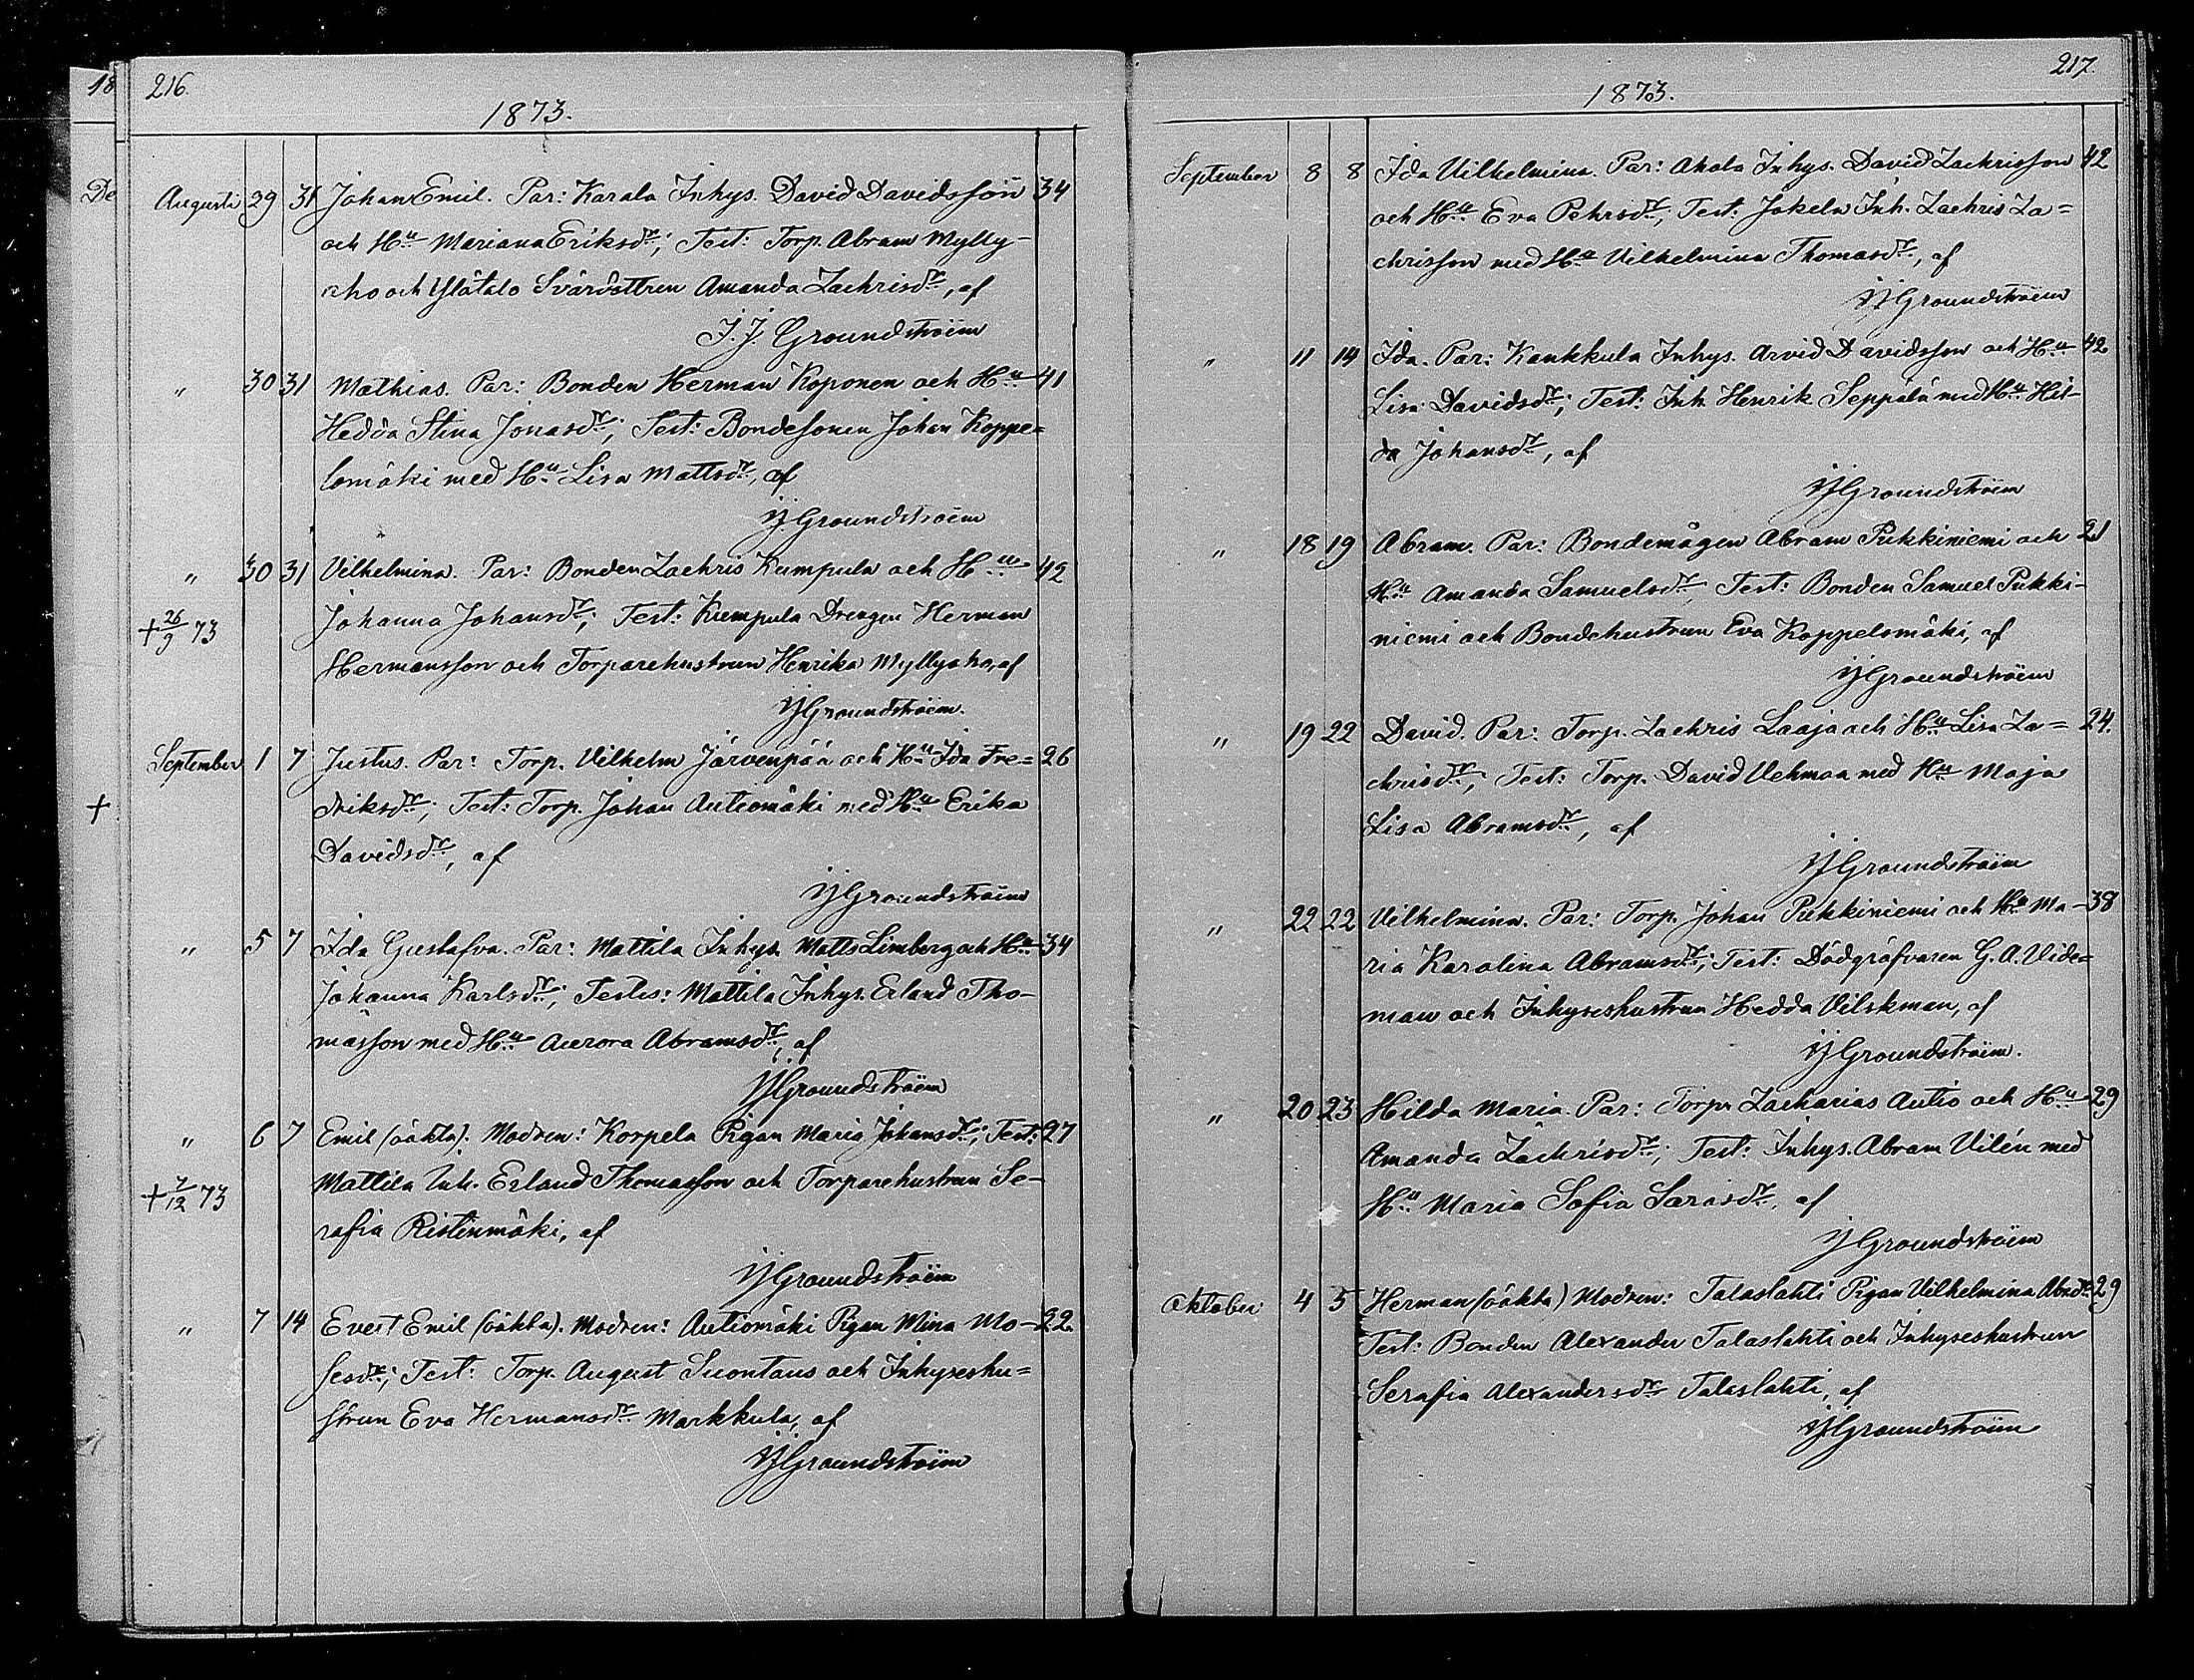 18
De
216.
1873.
Augusti 29 31 Johan Emil. Par: Karala Inhys. David Davidsson 34
och Hu Mariana Eriksdr; Test: Torp. Abram Mylly-
aho och Ylätalo Svärdttren Amanda Zachrisdr, af
I. J. Groundstroëm
" 30 31 Mathias. Par: Bonden Herman Koponen och Hu 41
Hedda Stina Jonasdr; Test: Bondesonen Johan Koppe=
lomäki med Hu Lisa Mattsdr, af
IJGroundstroëm
" 30 31 Vilhelmina. Par: Bonden Zachris Kumpula och Hu 42
+ 26/9 73 Johanna Johansdr; Test: Kumpula Drengen Herman
Hermansson och Torparehustrun Henrika Myllyaho, af
IJGroundstroëm.
September 1 7 Justus. Par: Torp. Vilhelm Järvenpää och Hu Ida Fre= 26
+ driksdr; Test: Torp. Johan Autiomäki med Hu Erika
Davidsdr, af
IJGroundstroëm
" 5 7 Ida Gustafva. Par: Mattila Inhys. Matts Limberg och Hu 34
Johanna Karlsdr; Testes: Mattila Inhys. Erland Tho-
masson med Hu Aurora Abramsdr, af
IJGroundstroëm
" 6 7 Emil (oäkta). Modren: Korpela Pigan Maria Johansdr; Test: 27
+ 7/12 73 Mattila Inh. Erland Thomasson och Torparehustrun Se-
rafia Ristinmäki, af
IJGroundstroëm
" 7 14 Evert Emil (oäkta). Modren: Autiomäki Pigan Mina Mo- 22.
sesdr; Test: Torp. August Suontaus och Inhyseshu=
strun Eva Hermansdr Markkula, af
IJGroundstroëm
217.
1873.
September 8 8 Ida Vilhelmina. Par: Ahola Inhys. David Zachrisson 42
och Hu Eva Pehrsdr; Test: Jokela Inh. Zachris Za=
chrisson med Hu Vilhelmina Thomasdr, af
IJGroundstroëm
" 11 14 Ida. Par: Kaukkula Inhys. Arvid Davidsson och Hu 42
Lisa Davidsdr; Test: Inh. Henrik Seppälä med Hu Hil-
da Johansdr, af
IJGroundstroëm
" 18 19 Abram. Par: Bondemågen Abram Pukkiniemi och 21
Hu Amanda Samuelsdr; Test: Bonden Samuel Pukki-
niemi och Bondehustrun Eva Koppelomäki, af
IJGroundstroëm
" 19 22 David. Par: Torp. Zachris Laaja och Hu Lisa Za= 24.
chrisdr; Test: Torp. David Vehmaa med Hu Maja
Lisa Abramsdr, af
IJGroundstroëm
" 22 22 Vilhelmina. Par: Torp. Johan Pukkiniemi och Hu Ma- 38
ria Karolina Abramsdr; Test: Dödgräfvaren G. A. Vide=
man och Inhyseshustrun Hedda Vilskman, af
IJGroundstroëm.
" 20 23 Hilda Maria. Par: Torp. Zacharias Autio och Hu 29
Amanda Zachrisdr; Test: Inhys. Abram Vilén med
Hu Maria Sofia Sarasdr, af
IJGroundstroëm
Oktober 4 5 Herman (oäkta) Modren: Talaslahti Pigan Vilhelmina Abrdr 29
Test: Bonden Alexander Talaslahti och Inhyseshustrun
Serafia Alexandersdr Talaslahti, af
IJGroundstroëm